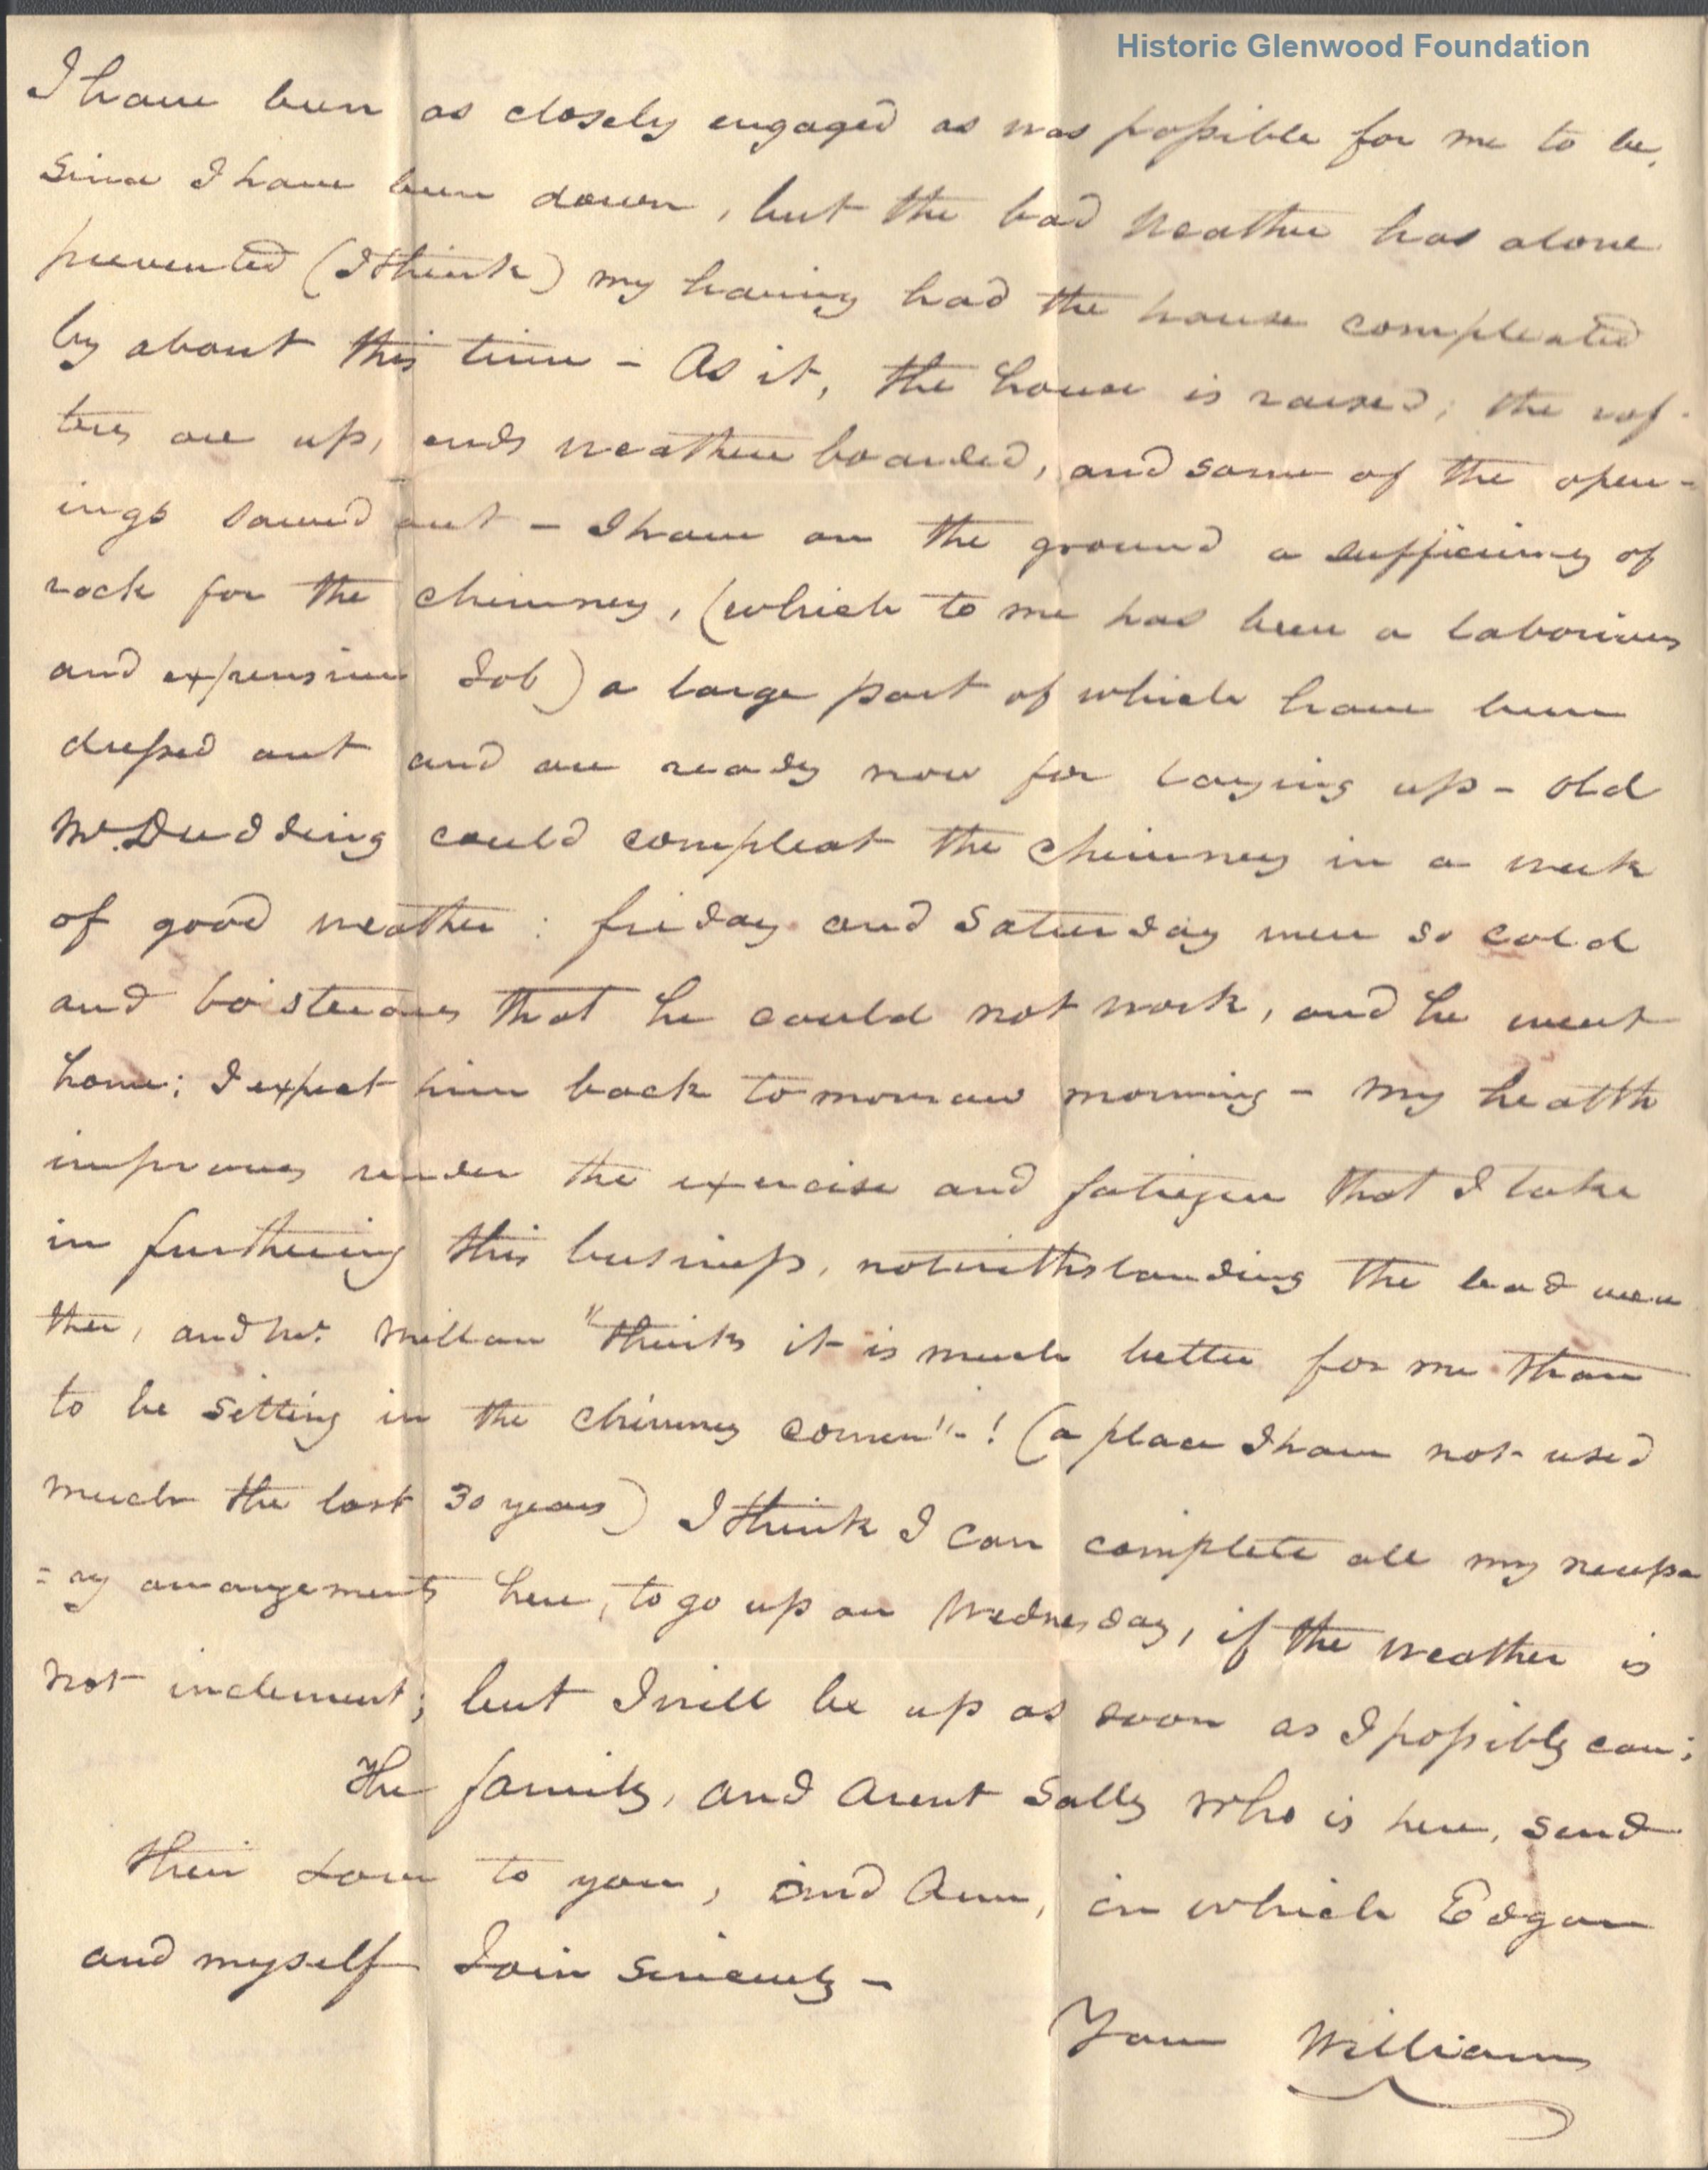 Historic Glenwood Foundation
I have been as closely engaged as was possible for me to be,
since I have been down, but the bad weather has alone
prevented (I think) my having had the house compleated
by about this time - As it, the house is raised; the raf-
ters are up, ends weather boarded, and some of the open-
ings sawed out - I have on the ground a sufficiency of
rock for the chimney, (which to me has been a laborious
and expensive Job) a large part of which have been
dressed out and are ready now for laying up - old
Mr. Dudding could compleat the chimney in a week
of good weather : friday and Saturday were so cold
and boisterous that he could not work, and he went
home; I expect him back tomorrow morning - My health
improves under the exercise and fatigue that I take
in furthering this business, notwithstanding the bad wea
ther, and Mr. Millan "thinks it is much better for me than
to be sitting in the chimney corner"-! (a place I have not used
much the last 30 years) I think I can complete all my necessa
=ry arrangements here, to go up on Wednesday, if the weather is
not inclement; but I will be up as soon as I possibly can;
The family, and Aunt Sally who is here, send
their Love to you, and Ann, in which Edgar
and myself Join sincerely -
Your William